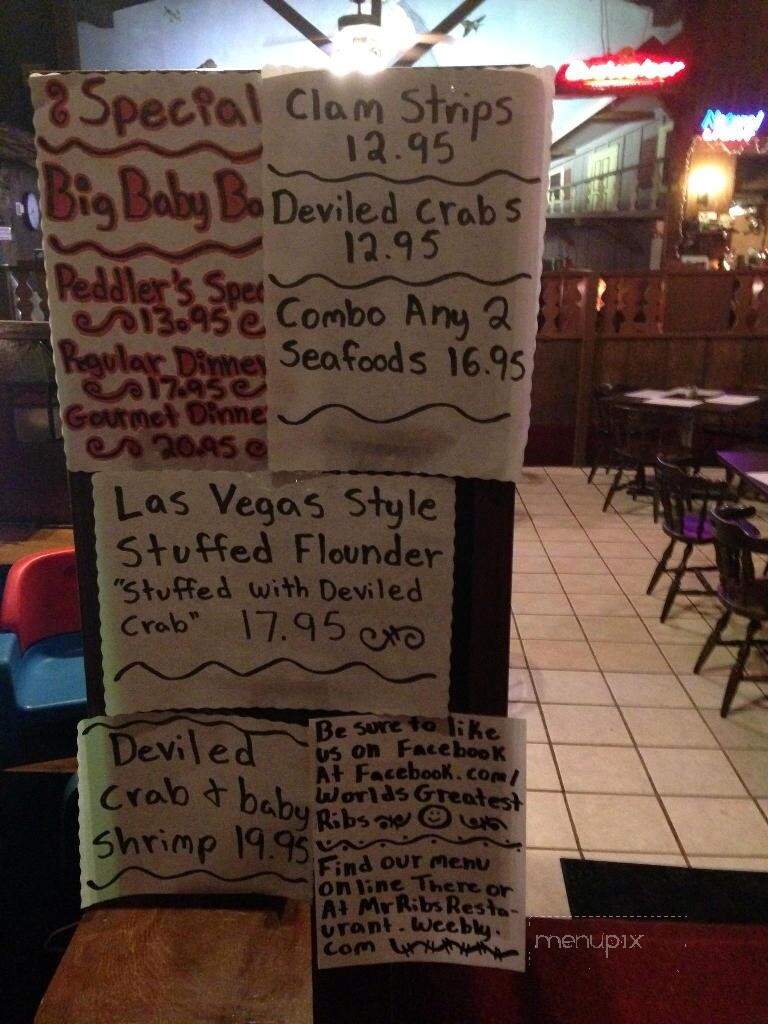 Special
Big Baby Ba
Peddler's Spec
13.95
Regular Dinner
17.95
Gourmet Dinne
20.95
Clam Strips
12.95
Deviled Crabs
12.95
Combo Any 2
Seafoods 16.95
Las Vegas Style
Stuffed Flounder
"Stuffed with Deviled
Crab" 17.95
Deviled
Crab & baby
Shrimp 19.95
Be sure to like
us on Facebook
At Facebook.com/
Worlds Greatest
Ribs
Find our menu
online There or
At MrRibsResta-
urant.Weebly.
com
Budweiser
menupix